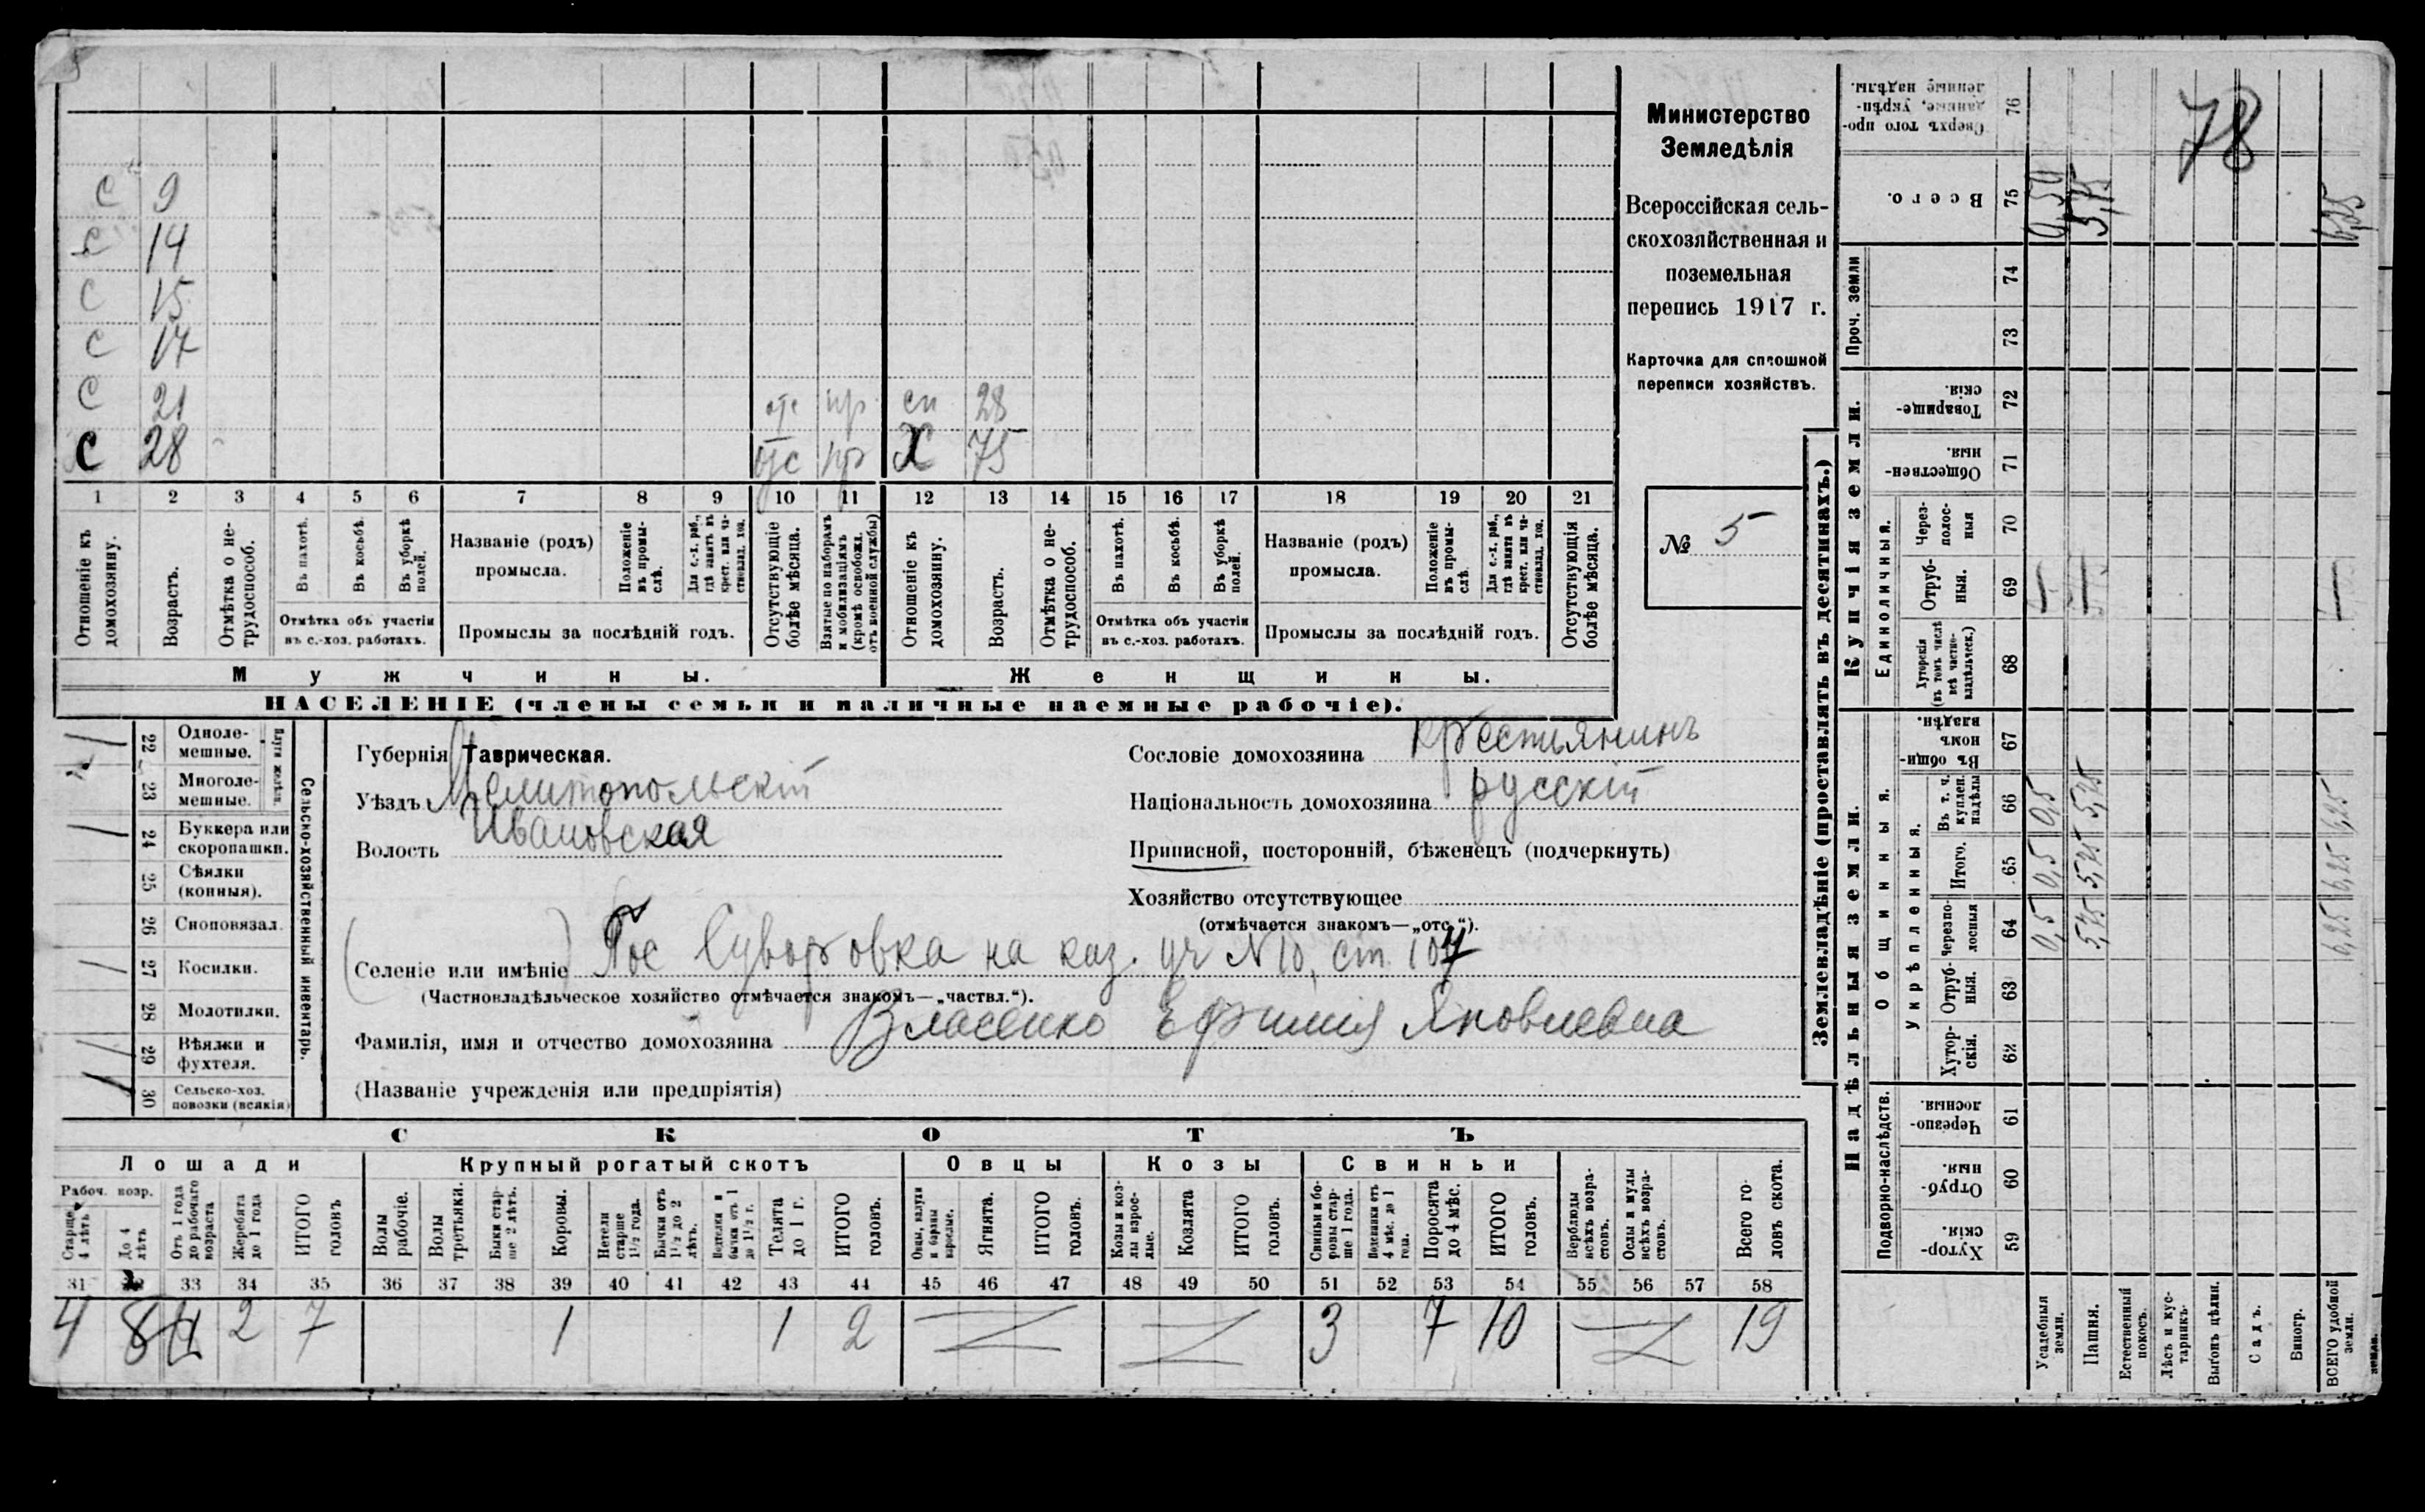 С 9
С 14
С 15
С 17
С 21 отс пр сн 28
С 28 отс пр Х 75
1 2 3 4 5 6 7 8 9 10 11 12 13 14 15 16 17 18 19 20 21
Отношеніе къ домохозяину.
Возрастъ.
Отмѣтка о нетрудоспособ.
Въ пахотѣ.
Въ косьбѣ.
Въ уборкѣ полей.
Отмѣтка объ участіи
въ с.-хоз. работахъ.
Названіе (родъ)
промысла.
Положеніе въ промыслѣ.
Для с.-х. раб., гдѣ занятъ въ крест. или частновлад. хоз.
Промыслы за послѣдній годъ.
Отсутствующіе болѣе мѣсяца.
Взятые по наборамъ и мобилизаціямъ (кромѣ освобожд. отъ военной службы)
Отношеніе къ домохозяину.
Возрастъ.
Отмѣтка о нетрудоспособ.
Въ пахотѣ.
Въ косьбѣ.
Въ уборкѣ полей.
Отмѣтка объ участіи
въ с.-хоз. работахъ.
Названіе (родъ)
промысла.
Положеніе въ промыслѣ.
Для с.-х. раб., гдѣ занята въ крест. или частновлад. хоз.
Промыслы за послѣдній годъ.
Отсутствующія болѣе мѣсяца.
Мужчины.
Женщины.
НАСЕЛЕНІЕ (члены семьи и наличные наемные рабочіе).
Министерство
Земледѣлія
Всероссійская сель-
скохозяйственная и
поземельная
перепись 1917 г.
Карточка для сплошной
переписи хозяйствъ.
№ 5
Сельско-хозяйственный инвентарь.
Плуги желѣзн.
22 Одноле-
мешные.
23 Многоле-
мешные.
24 Буккера или
скоропашки.
25 Сѣялки
(конныя).
26 Сноповязал.
27 Косилки.
28 Молотилки.
29 Вѣялки и
фухтеля.
30 Сельско-хоз.
повозки (всякія)
Губернія Таврическая.
Уѣздъ Мелитопольскій
Волость Ивановская
Сословіе домохозяина крестьянинъ
Національность домохозяина русскій
Приписной, посторонній, бѣженецъ (подчеркнуть)
Хозяйство отсутствующее
(отмѣчается знакомъ—„отс“).
Селеніе или имѣніе Пос Суворовка на каз. уч N 10, ст. 107
(Частновладѣльческое хозяйство отмѣчается знакомъ—„частвл.“).
Фамилія, имя и отчество домохозяина Власенко Ефимия Яковлевна
(Названіе учрежденія или предпріятія)
СКОТЪ
Лошади
Крупный рогатый скотъ
Овцы
Козы
Свиньи
Рабоч. возр.
Старше 4 лѣтъ
До 4 лѣтъ
Отъ 1 года до рабочаго возраста
Жеребята до 1 года
ИТОГО головъ
Волы рабочіе.
Волы третьяки.
Быки старше 2 лѣтъ.
Коровы.
Нетели старше 1½ года.
Бычки отъ 1½ до 2 лѣтъ.
Подтелки и бычки отъ 1 до 1½ г.
Телята до 1 г.
ИТОГО головъ.
Овцы, валухи и бараны взрослые.
Ягнята.
ИТОГО головъ.
Козы и козлы взрослые.
Козлята
ИТОГО головъ.
Свиньи и боровы старше 1 года.
Подсвинки отъ 4 мѣс. до 1 года.
Поросята до 4 мѣс.
ИТОГО головъ.
Верблюды всѣхъ возрастовъ.
Ослы и мулы всѣхъ возрастовъ.
Всего головъ скота.
31 33 34 35 36 37 38 39 40 41 42 43 44 45 46 47 48 49 50 51 52 53 54 55 56 57 58
4 2 7 1 1 2 3 7 10 19
Землевладѣніе (проставлять въ десятинахъ.)
Купчія земли.
Надѣльныя земли.
Сверхъ того проданные, укрѣпленные надѣлы. 76
Всего. 75 0,50 5,75 6,25
Проч. земли 74
73
Товарищескія. 72
Общественныя. 71
Единоличныя.
Черезполосныя 70
Отрубныя. 69
Хуторскія (въ томъ числѣ всѣ частновладѣльческ.) 68
Общинныя.
Въ общинномъ владѣн. 67
Укрѣпленныя.
Въ т. ч. куплен. надѣлы 66 0,5 5,75 6,25
Итого. 65 0,5 5,75 6,25
Черезполосныя 64 0,5 5,75 6,25
Отрубныя. 63
Хуторскія. 62
Подворно-наслѣдств.
Черезполосныя. 61
Отрубныя. 60
Хуторскія 59
Усадебныя земли.
Пашня.
Естественный покосъ.
Лѣсъ и кустарникъ.
Выгонъ цѣлин.
Садъ.
Виногр.
ВСЕГО удобной земли.
78